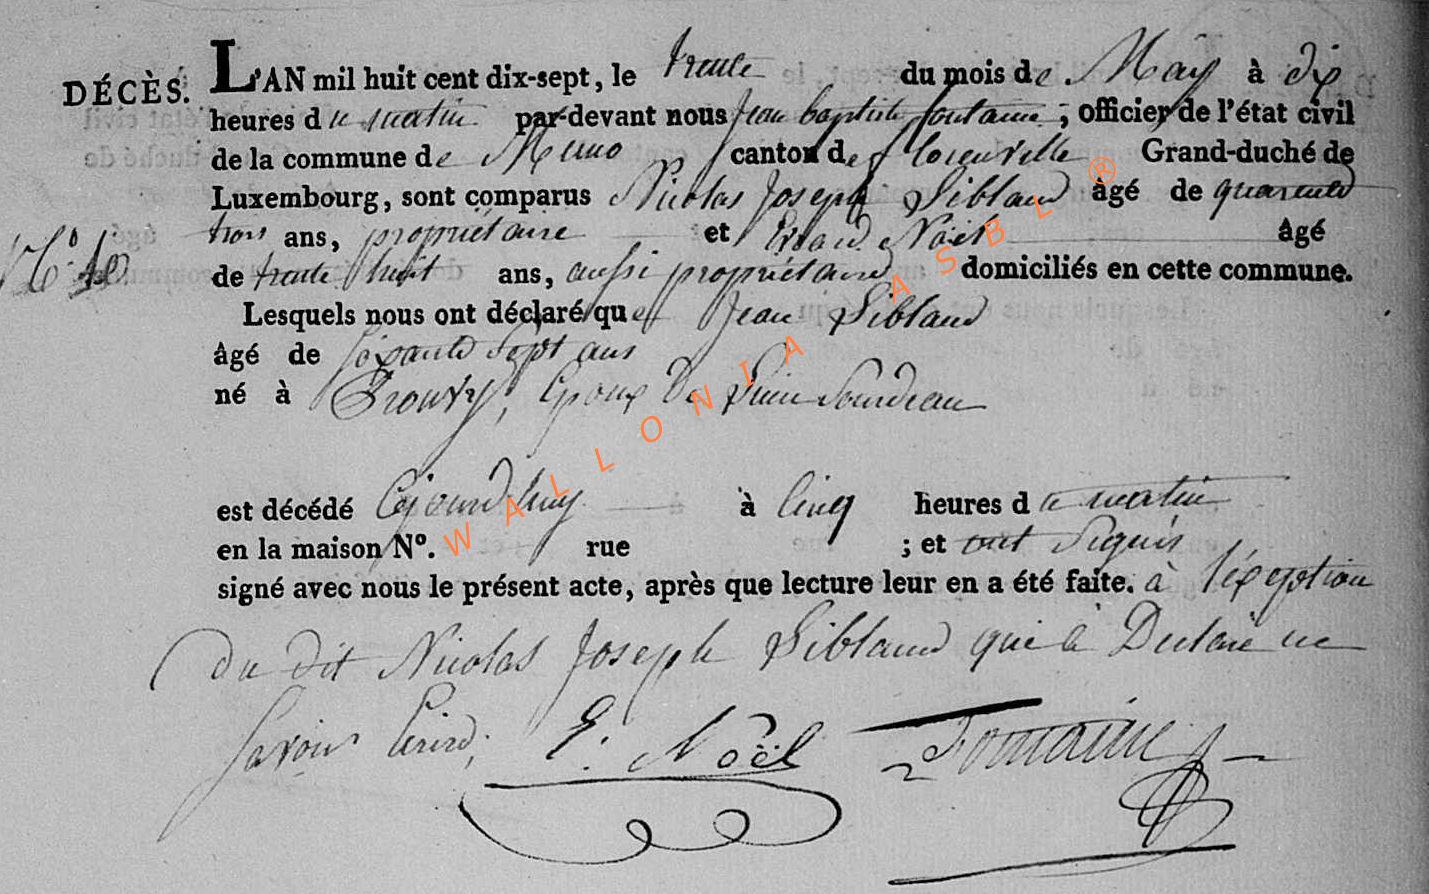 DÉCÈS. L'AN mil huit cent dix-sept, le trente du mois de May à dix
heures du matin par-devant nous Jean baptiste fontaine, officier de l'état civil
de la commune de Muno canton de florenville Grand-duché de
Luxembourg, sont comparus Nicolas Joseph Siblaud âgé de quarente
trois ans, propriétaire et Erard Noël âgé
N.° 10 de trente huit ans, aussi propriétaire domiciliés en cette commune.
Lesquels nous ont déclaré que Jean Siblaud
âgé de soixante sept ans
né à époux de Sourdeau
est décédé cejourd'huy à cinq heures du matin
en la maison N°. rue ; et ont signés
signé avec nous le présent acte, après que lecture leur en a été faite. à l'éxeption
du dit Nicolas Joseph Siblaud qui à Declaré ne
savoir Ecrire.
E. Noël fontaine
WALLONIA ASBL ®